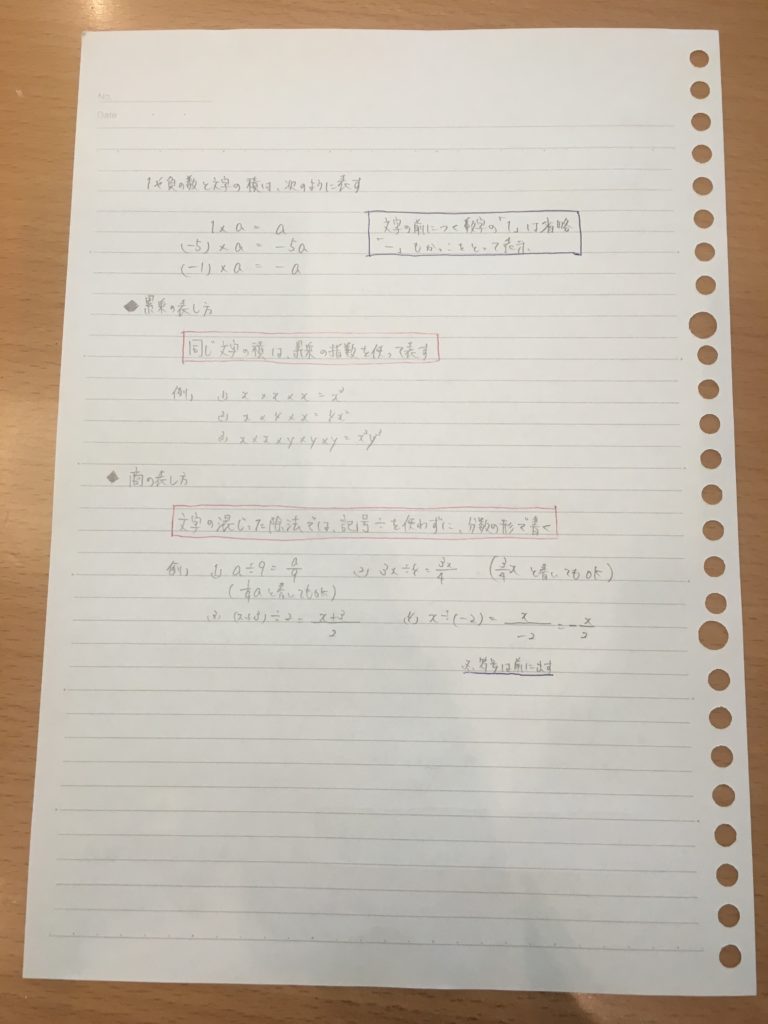 No.
Date
1や負の数と文字の積は、次のように表す
1 × a = a
(-5) × a = -5a
(-1) × a = -a
文字の前につく数字の「1」は省略
「-」もかっこをとって表示.
◆累乗の表し方
同じ文字の積は、累乗の指数を使って表す
例, (1) x × x × x = x³
(2) x × 4 × x = 4x²
(3) x × x × y × y × y = x²y³
◆商の表し方
文字の混じった除法では、記号÷を使わずに、分数の形で書く
例, (1) a÷9 = a/9 (2) 3x÷4 = 3x/4 (3/4 x と書いてもok)
(1/9 a と書いてもok)
(3) (x+3)÷2 = x+3/2 (4) x÷(-2) = x/-2 = -x/2
※, 符号は前に出す